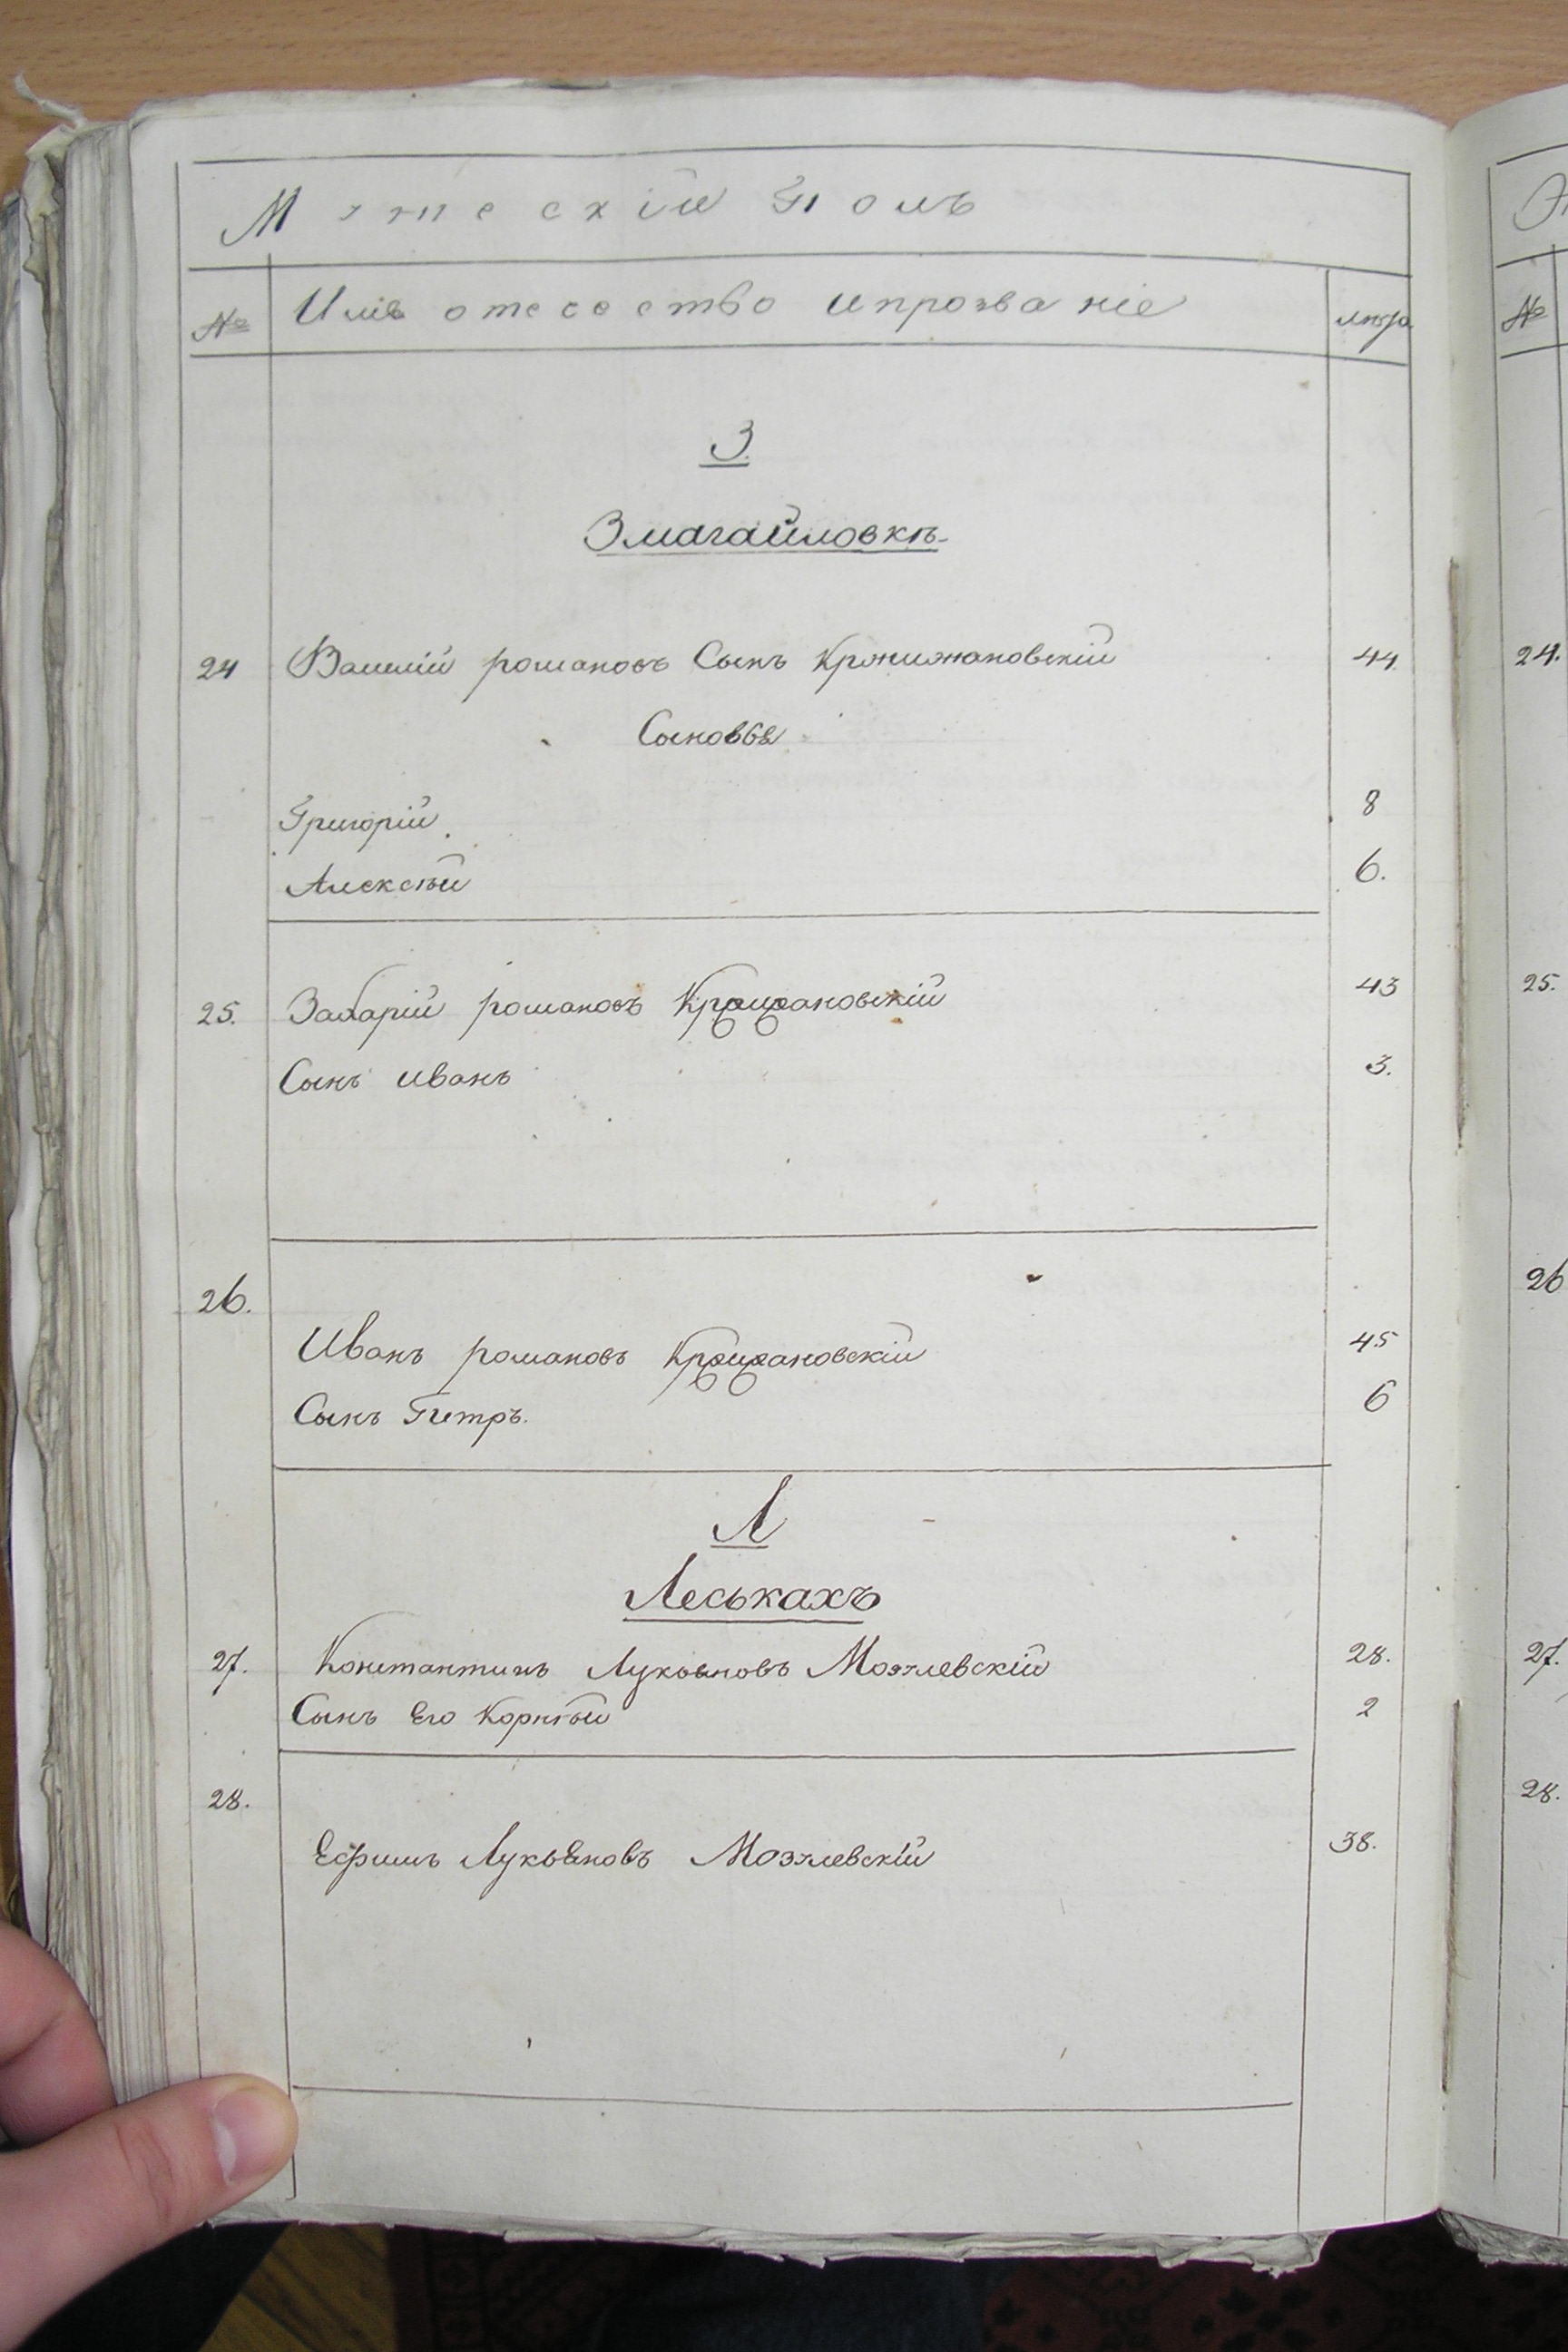 Мужескій Полъ
№ Имя отечество и прозваніе лѣта
З
Змагайловкѣ
24 Василій романовъ Сынъ Кржижановскій 44
Сыновья
Григорій 8
Алексѣй 6.
25. Захарій романовъ Кржижановскій 43
Сынъ Иванъ 3.
26.
Иванъ романовъ Кржижановскій 45
Сынъ Петръ. 6
Л
Леськахъ
27. Константинъ Лукьяновъ Мозжевскій 28.
Сынъ Его Корнѣй 2
28.
Ефимъ Лукьяновъ Мозжевскій 38.
№
24.
25.
26
27.
28.